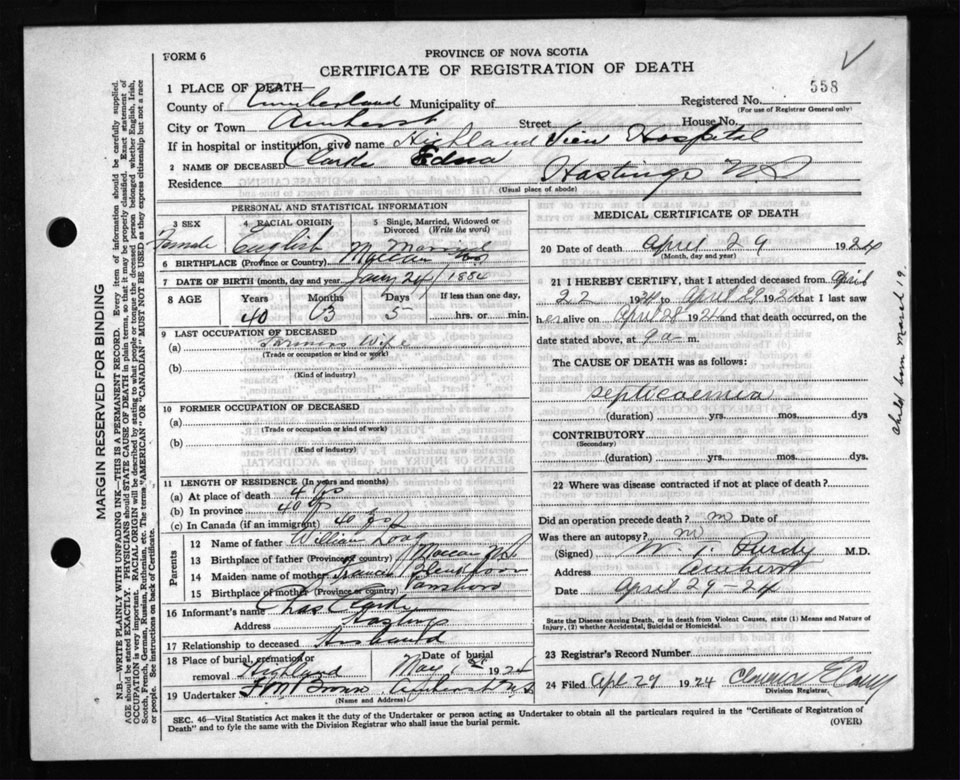 FORM 6
PROVINCE OF NOVA SCOTIA
CERTIFICATE OF REGISTRATION OF DEATH
558
1 PLACE OF DEATH—
County of Cumberland Municipality of
Registered No.
(For use of Registrar General only)
City or Town Amherst Street House No.
If in hospital or institution, give name Highland View Hospital
2 NAME OF DECEASED Clarke Edna
Residence Hastings NS
(Usual place of abode)
PERSONAL AND STATISTICAL INFORMATION
3 SEX Female
4 RACIAL ORIGIN English
5 Single, Married, Widowed or Divorced (Write the word) Married
6 BIRTHPLACE (Province or Country) Maccan NS
7 DATE OF BIRTH (month, day and year) Jany 24/1884
8 AGE Years Months Days If less than one day,
40 03 5 hrs. or min.
9 LAST OCCUPATION OF DECEASED
(a) Farmers Wife
(Trade or occupation or kind of work)
(b)
(Kind of industry)
10 FORMER OCCUPATION OF DECEASED
(a)
(Trade or occupation or kind of work)
(b)
(Kind of industry)
11 LENGTH OF RESIDENCE (In years and months)
(a) At place of death 4
(b) In province 40
(c) In Canada (if an immigrant) 40
Parents
12 Name of father William
13 Birthplace of father (Province or country) Maccan NS
14 Maiden name of mother
15 Birthplace of mother (Province or country) Parrsboro
16 Informant's name Chas Clarke
Address Hastings
17 Relationship to deceased Husband
18 Place of burial, cremation or removal Highland Date of burial May 1st 1924
19 Undertaker Amherst N.S
(Name and Address)
MEDICAL CERTIFICATE OF DEATH
20 Date of death April 29 1924
(Month, day and year)
21 I HEREBY CERTIFY, that I attended deceased from April
22 1924 to April 29 1924 that I last saw
her alive on April 28 1924 and that death occurred, on the
date stated above, at 9 a m.
The CAUSE OF DEATH was as follows:
septicaemia
(duration) yrs. mos. dys
CONTRIBUTORY
(Secondary)
(duration) yrs. mos. dys.
22 Where was disease contracted if not at place of death?
Did an operation precede death? no Date of
Was there an autopsy? no
(Signed) W. T. Purdy M.D.
Address Amherst
Date April 29-24
State the Disease causing Death, or in death from Violent Causes, state (1) Means and Nature of Injury, (2) whether Accidental, Suicidal or Homicidal.
23 Registrar's Record Number
24 Filed Apl 29 1924
Division Registrar
SEC. 46—Vital Statistics Act makes it duty of the Undertaker or person acting as Undertaker to obtain all the particulars required in the "Certificate of Registration of
Death" and to fyle the same with the Division Registrar who shall issue the burial permit.
(OVER)
MARGIN RESERVED FOR BINDING
N.B.—WRITE PLAINLY WITH UNFADING INK—THIS IS A PERMANENT RECORD. Every item of information should be carefully supplied.
AGE should be stated EXACTLY. PHYSICIANS should STATE CAUSE OF DEATH in plain terms, so that it may be properly classified. Exact statement of
OCCUPATION is very important. RACIAL ORIGIN will be described by stating to what people or tongue the deceased person belonged whether English, Irish,
Scotch, French, German, Russian, Ruthenian, etc. The terms "AMERICAN" or "CANADIAN" MUST NOT BE USED as they express citizenship but not a race
or people. See instructions on back of Certificate.
child born march 19.